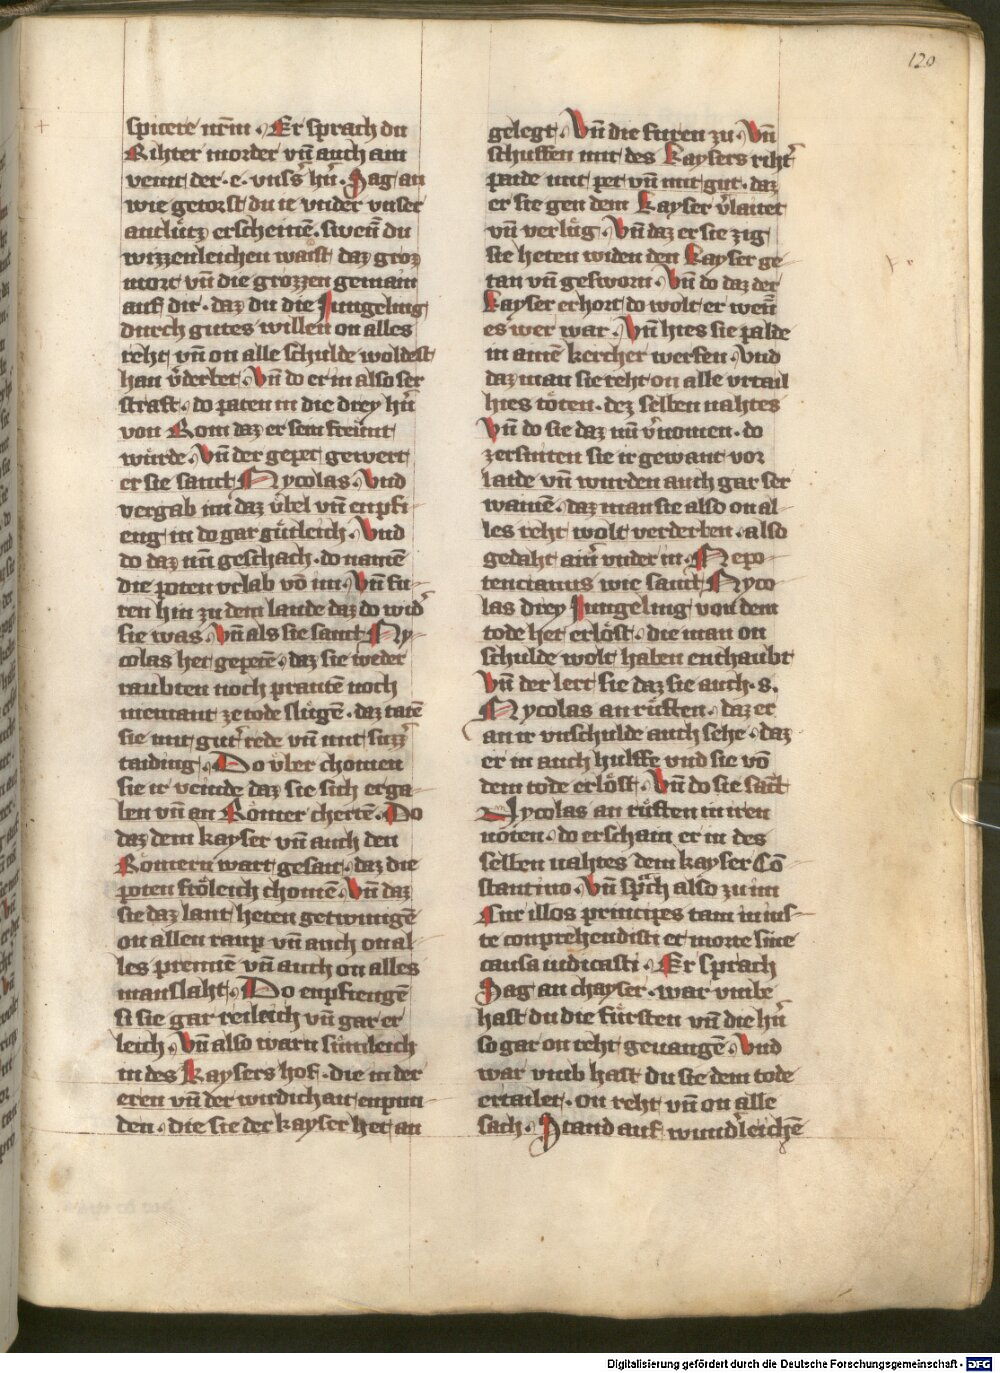 120
spicere nr̄m . Er sprach du
Rihter morder vn̄ auch ain
veint der .e. vnss̄ hr̄n . Sag an
wie getorst du ie vnder vnser
antlütz erscheinē . swenn̄ du
wizzenleichen waist daz groz
mort vn̄ die grozzen gemain
auf dir . daz du die Jungeling
durch gutes willen on alles
reht vn̄ on alle schulde woldest
han v̄derbet . Vn̄ do er in also ser
straft . do paten in die drey hr̄n
von Rom daz er sein freunt
würde . Vn̄ der gepet gewert
er sie sanct Nycolas . Vnd
vergab im daz vͤbel vn̄ enpfi-
eng in do gar gütleich . Vnd
do daz nū geschach . do namē
die poten vrlab vō im . Vn̄ fu-
ren hin zu dem lande daz do wid̄
sie was . Vn̄ als sie sanct Ny-
colas het gepetē . daz sie weder
raubten noch prantē noch
niemant ze tode slügē . daz tatē
sie mit gut̄ rede vn̄ mit suzz̄
taiding . Do vͤber chomen
sie ir veinde daz sie sich erga-
ben vn̄ an Römer chertē . Do
daz dem kayser vn̄ auch den
Römern wart gesait . daz die
poten frölleich chomē . Vn̄ daz
sie daz lant heten getwungē
on allen raup vn̄ auch on al-
les prennē vn̄ auch on alles
manslaht . Do enpfiengē
si sie gar reileich vn̄ gar er
leich . Vn̄ also warn sümleich
in des Kaysers hof . die in der
eren vn̄ der wirdichait enpun-
den . die sie der kayser het an
gelegt . Vn̄ die furen zu . Vn̄
schuffen mit des Kaysers riht̄
paide mit pet vn̄ mit gut . daz
er sie gen dem Kayser v̄laitet
vn̄ verlüg . Vn̄ daz er sie zig
sie heten widen den Kayser ge-
tan vn̄ gesworn . Vn̄ do daz der
Kayser erhort do wolt er wenn̄
es wer war . Vn̄ hies sie palde
in ainē kercher werfen . Vnd
daz man sie reht on alle vrtail
hies töten . dez selben nahtes
Vn̄ do sie daz nū v̄nomen . do
zersniten sie ir gewant vor
laide vn̄ wurden auch gar ser
wainē . daz man sie also on al-
les reht wolt verderben . also
gedaht ain̄ vnder in . Nepo-
tencianus wie sanct Nyco
las drey Jungeling von dem
tode het erlöst . die man on
schulde wolt haben enthaubt
Vn̄ der lert sie daz sie auch .S.
Nycolas an rüften . daz er
an ir vnschulde auch sehe . daz
er in auch hulffe vnd sie vō
dem tode erlöst . Vn̄ do sie sāct
Nycolas an rüften in iren
nöten . do erschain er in des
selben nahtes dem kayser Cō
stantino . Vn̄ sp̄ch also zu im
Cur illos principes tam inius-
te conprehendisti et morte sine
causa iudicasti . Er sprach
Sag an chayser . war vmbe
hast du die fürsten vn̄ die hr̄n
so gar on reht geuangē . Vnd
war vmb hast du sie dem tode
ertailet . on reht vn̄ on alle
sach . Stand auf wund̄leichē
Digitalisierung gefördert durch die Deutsche Forschungsgemeinschaft - DFG